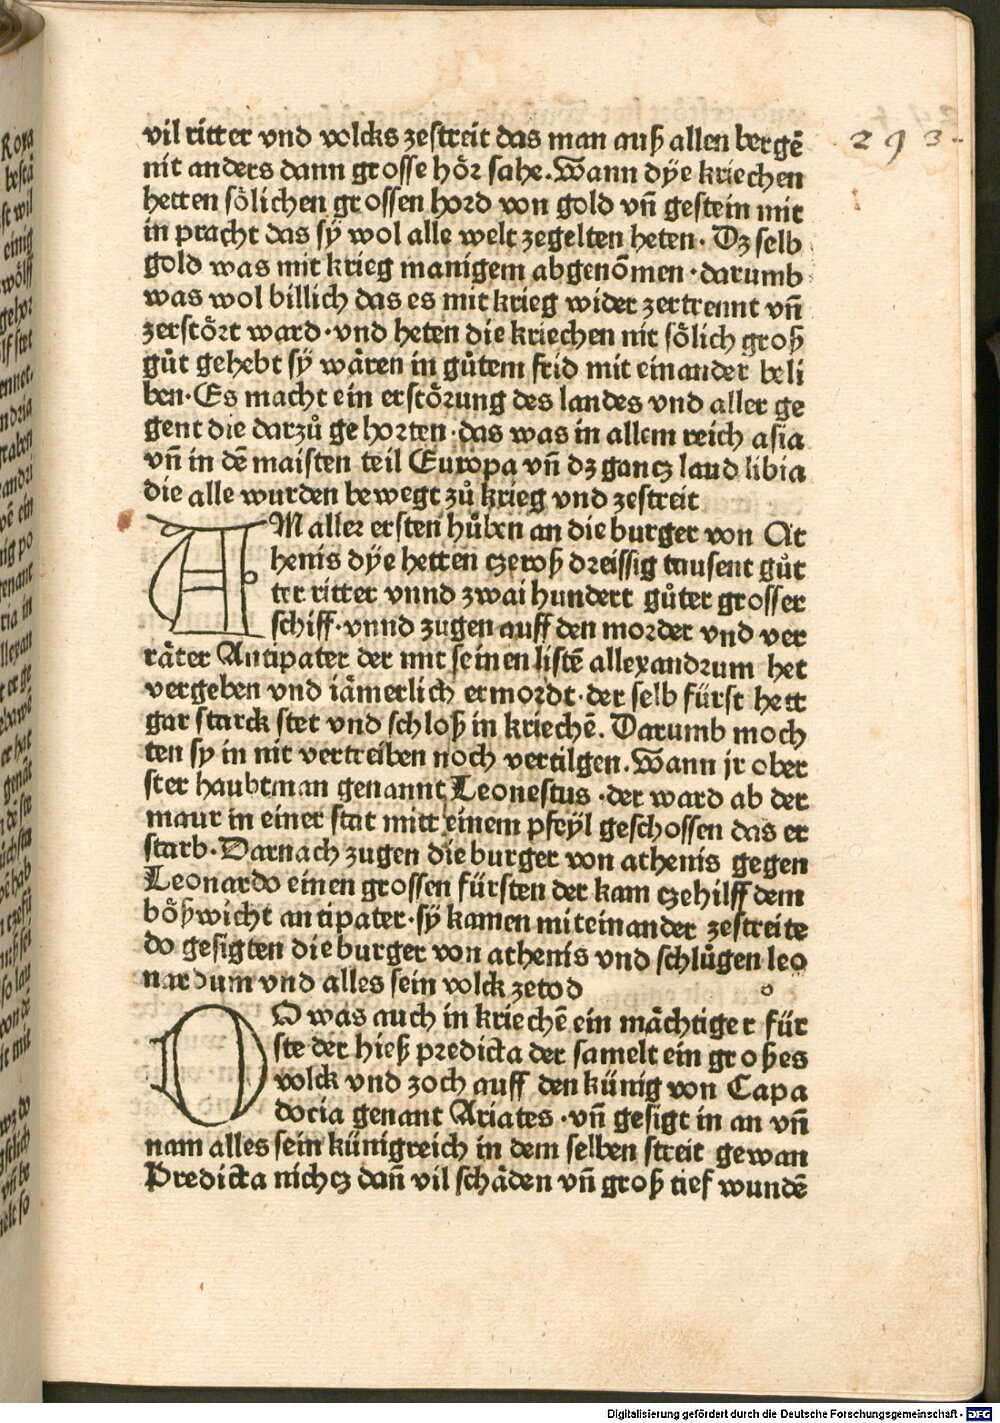 vil ritter vnd volcks zestreit das man auß allen bergē
293.
nit anders dann grosse hör sahe. Wann dÿe kriechen
hetten sölichen grossen hord von gold vñ gestein mit
in pracht das sÿ wol alle welt zegelten heten. Dz selb
gold was mit krieg manigem abgenōmen · darumb
was wol billich das es mit krieg wider zertrennt vñ
zerstört ward · vnd heten die kriechen nit sölich groß
gůt gehebt sÿ wären in gůtem frid mit einander beli
ben. Es macht ein erstörung des landes vnd aller ge
gent die darzů gehorten · das was in allem reich asia
vñ in dē maisten teil Europa vñ dz gancz land libia
die alle wurden bewegt zů krieg vnd zestreit
AM aller ersten hůben an die burger von At
henis dÿe hetten czeroß dreissig tausent gůt
ter ritter vnnd zwai hundert gůter grosser
schiff · vnnd zugen auff den morder vnd ver
räter Antipater der mit seinen listē allexandrum het
vergeben vnd iämerlich ermordt · der selb fürst hett
gar starck stet vnd schloß in kriechē. Darumb moch
ten sy in nit vertreiben noch vertilgen. Wann jr ober
ster haubtman genannt Leonestus · der ward ab der
maur in einer stat mitt einem pfeÿl geschossen das er
starb. Darnach zugen die burger von athenis gegen
Leonardo einen grossen fürsten der kam czehilff dem
bößwicht antipater · sÿ kamen miteinander zestreite
do gesigten die burger von athenis vnd schlůgen leo
nardum vnd alles sein volck zetod
DO was auch in kriechē ein mächtiger für
ste der hieß predicta der samelt ein großes
volck vnd zoch auff den künig von Capa
docia genant Ariates · vñ gesigt in an vñ
nam alles sein künigreich in dem selben streit gewan
Predicta nichcz dañ vil schäden vñ groß tief wundē
Digitalisierung gefördert durch die Deutsche Forschungsgemeinschaft - DFG